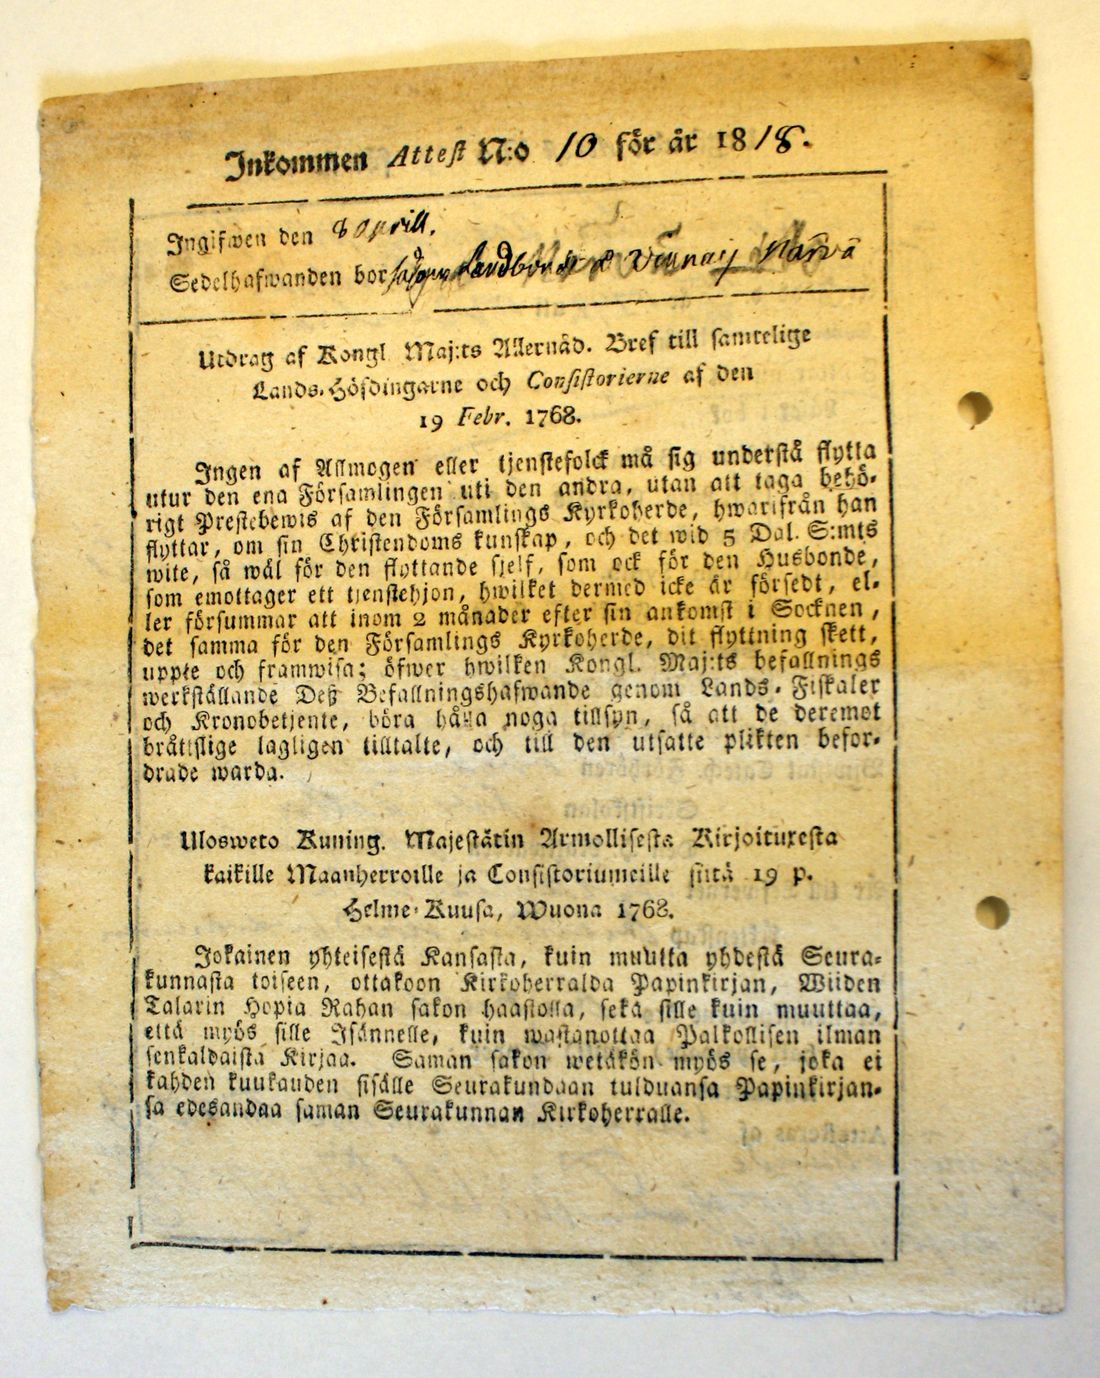 Inkommen Attest N:o 10 för år 1818.
Ingifwen den 8 April.
Sedelhafwanden bor Landbonde
Utdrag af Kongl. Maj:ts Allernåd. Bref till samtelige
Lands-Höfdingarne och Consistorierne af den
19 Febr. 1768.
Ingen af Allmogen eller tjenstefolck må sig understå flytta
utur den ena Församlingen uti den andra, utan att taga behö-
rigt Prestebewis af den Församlings Kyrkoherde, hwarifrån han
flyttar, om sin Christendoms kunskap, och det wid 5 Dal. S:mts
wite, så wäl för den flyttande sjelf, som ock för den Husbonde,
som emottager ett tjenstehjon, hwilket dermed icke är försedt, el-
ler försummar att inom 2 månader efter sin ankomst i Socknen,
det samma för den Församlings Kyrkoherde, dit flyttning skett,
uppte och framwisa; öfwer hwilken Kongl. Maj:ts befallnings
werkställande Deß Befallningshafwande genom Lands-Fiskaler
och Kronobetjente, böra hålla noga tillsyn, så att de deremot
bråttslige lagligen tilltalte, och till den utsatte plikten befor-
drade warda.
Ulosweto Kuning. Majestätin Armollisesta Kirjoituxesta
kaikille Maanherroille ja Consistoriumeille siitä 19 p.
Helme-Kuusa, Wuona 1768.
Jokainen yhteisestä Kansasta, kuin muutta yhdestä Seura-
kunnasta toiseen, ottakoon Kirkoherralda Papinkirjan, Wiiden
Talarin Hopia Rahan sakon haastolla, sekä sille kuin muuttaa,
että myös sille Isännelle, kuin wastanottaa Palkollisen ilman
senkaldaista Kirjaa. Saman sakon wetäkön myös se, joka ei
kahden kuukauden sisälle Seurakundaan tulduansa Papinkirjan-
sa edesandaa saman Seurakunnan Kirkoherralle.